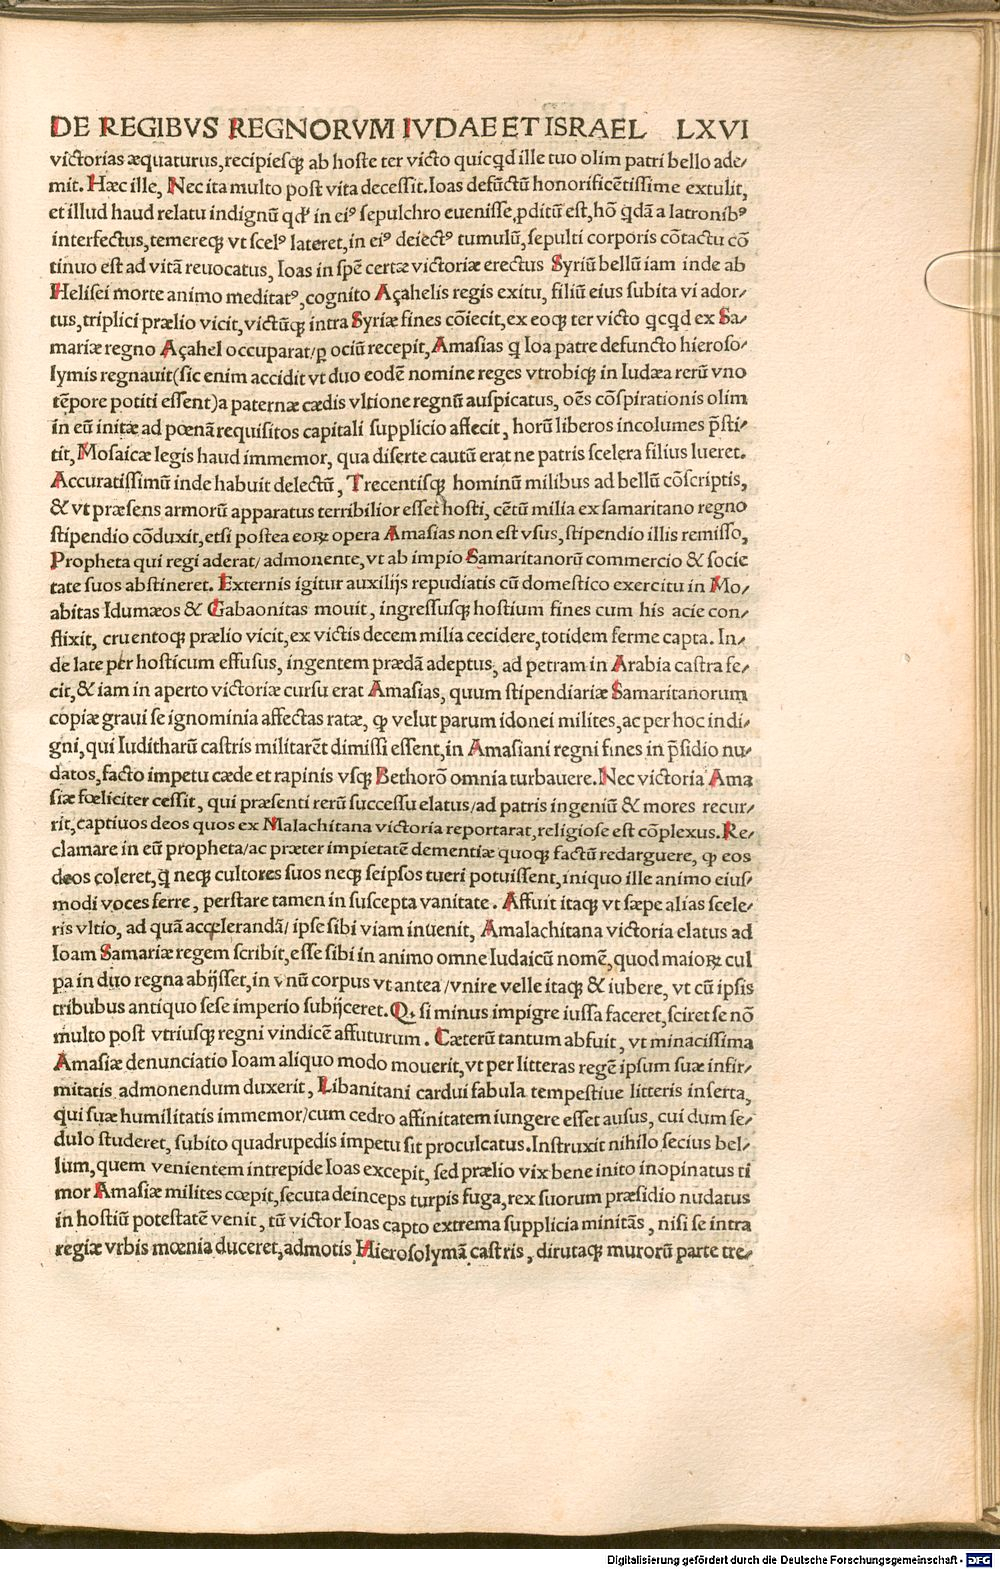 DE REGIBVS REGNORVM IVDAE ET ISRAEL LXVI
victorias æquaturus, recipiesqꝫ ab hoste ter victo quicqd ille tuo olim patri bello ade⸗
mit. Hæc ille, Nec ita multo post vita decessit. Ioas defūctū honorificētissime extulit,
et illud haud relatu indignū qd' in eiꝰ sepulchro euenisse, ꝓditū est, hoͤ qͥdā a latronibꝰ
interfectus, temereqꝫ vt scelꝰ lateret, in eiꝰ deiectꝰ tumulū, sepulti corporis cōtactu cō
tinuo est ad vitā reuocatus, Ioas in spē certæ victoriæ erectus Syriū bellū iam inde ab
Helisei morte animo meditatꝰ, cognito Açahelis regis exitu, filiū eius subita vi ador⸗
tus, triplici prælio vicit, victūqꝫ intra Syriæ fines cōiecit, ex eoqꝫ ter victo qcqd ex Sa⸗
mariæ regno Açahel occuparat/ꝑ ociū recepit, Amasias q Ioa patre defuncto hieroso⸗
lymis regnauit(sic enim accidit vt duo eodē nomine reges vtrobiqꝫ in Iudæa rerū vno
tēpore potiti essent)a paternæ cædis vltione regnū auspicatus, oēs cōspirationis olim
in eū initæ ad pœnā requisitos capitali supplicio affecit, horū liberos incolumes p̄sti⸗
tit, Mosaicæ legis haud immemor, qua diserte cautū erat ne patris scelera filius lueret.
Accuratissimū inde habuit delectū, Trecentisqꝫ hominū milibus ad bellū cōscriptis,
& vt præsens armorū apparatus terribilior esset hosti, cētū milia ex samaritano regno
stipendio cōduxit, etsi postea eoꝝ opera Amasias non est vsus, stipendio illis remisso,
Propheta qui regi aderat/ admonente, vt ab impio Samaritanorū commercio & socie
tate suos abstineret. Externis igitur auxilijs repudiatis cū domestico exercitu in Mo⸗
abitas Idumæos & Gabaonitas mouit, ingressusqꝫ hostium fines cum his acie con⸗
flixit, cruentoqꝫ prælio vicit, ex victis decem milia cecidere, totidem ferme capta. In⸗
de late per hosticum effusus, ingentem prædā adeptus, ad petram in Arabia castra fe⸗
cit, & iam in aperto victoriæ cursu erat Amasias, quum stipendiariæ Samaritanorum
copiæ graui se ignominia affectas ratæ, ꝙ velut parum idonei milites, ac per hoc indi⸗
gni, qui Iuditharū castris militarēt dimissi essent, in Amasiani regni fines in p̄sidio nu⸗
datos, facto impetu cæde et rapinis vsqꝫ Bethorō omnia turbauere. Nec victoria Ama
siæ fœliciter cessit, qui præsenti rerū successu elatus/ad patris ingeniū & mores recur⸗
rit, captiuos deos quos ex Malachitana victoria reportarat, religiose est cōplexus. Re⸗
clamare in eū propheta/ac præter impietatē dementiæ quoqꝫ factū redarguere, ꝙ eos
deos coleret, q̄ neqꝫ cultores suos neqꝫ seipsos tueri potuissent, iniquo ille animo eius⸗
modi voces ferre, perstare tamen in suscepta vanitate. Affuit itaqꝫ vt sæpe alias scele⸗
ris vltio, ad quā accelerandā/ ipse sibi viam inuenit, Amalachitana victoria elatus ad
Ioam Samariæ regem scribit, esse sibi in animo omne Iudaicū nomē, quod maioꝝ cul
pa in duo regna abijsset, in vnū corpus vt antea/vnire velle itaqꝫ & iubere, vt cū ipsis
tribubus antiquo sese imperio subijceret. Q. si minus impigre iussa faceret, sciret se nō
multo post vtriusqꝫ regni vindicē affuturum. Cæterū tantum abfuit, vt minacissima
Amasiæ denunciatio Ioam aliquo modo mouerit, vt per litteras regē ipsum suæ infir⸗
mitatis admonendum duxerit, Libanitani cardui fabula tempestiue litteris inserta,
qui suæ humilitatis immemor/cum cedro affinitatem iungere esset ausus, cui dum se⸗
dulo studeret, subito quadrupedis impetu sit proculcatus. Instruxit nihilo secius bel⸗
lum, quem venientem intrepide Ioas excepit, sed prælio vix bene inito inopinatus ti
mor Amasiæ milites cœpit, secuta deinceps turpis fuga, rex suorum præsidio nudatus
in hostiū potestatē venit, tū victor Ioas capto extrema supplicia minitās, nisi se intra
regiæ vrbis mœnia duceret, admotis Hierosolymā castris, dirutaqꝫ murorū parte tre⸗
Digitalisierung gefördert durch die Deutsche Forschungsgemeinschaft - DFG